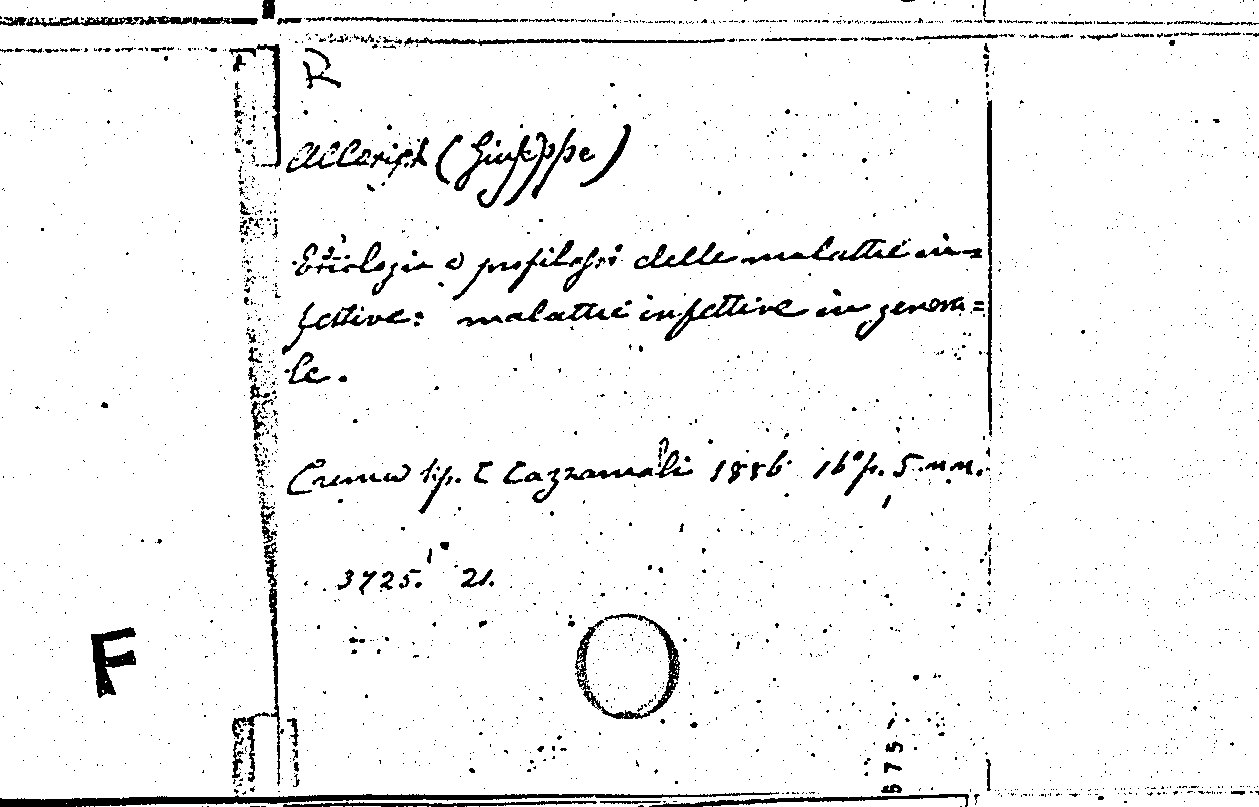 R
(Giuseppe)
Etiologia e profilassi delle malattie in=
fettive: malattie infettive in genera=
le.
Crema tip. C Cazzamali 1886 16° p. 5. nn.
3725. 21.
F
575-